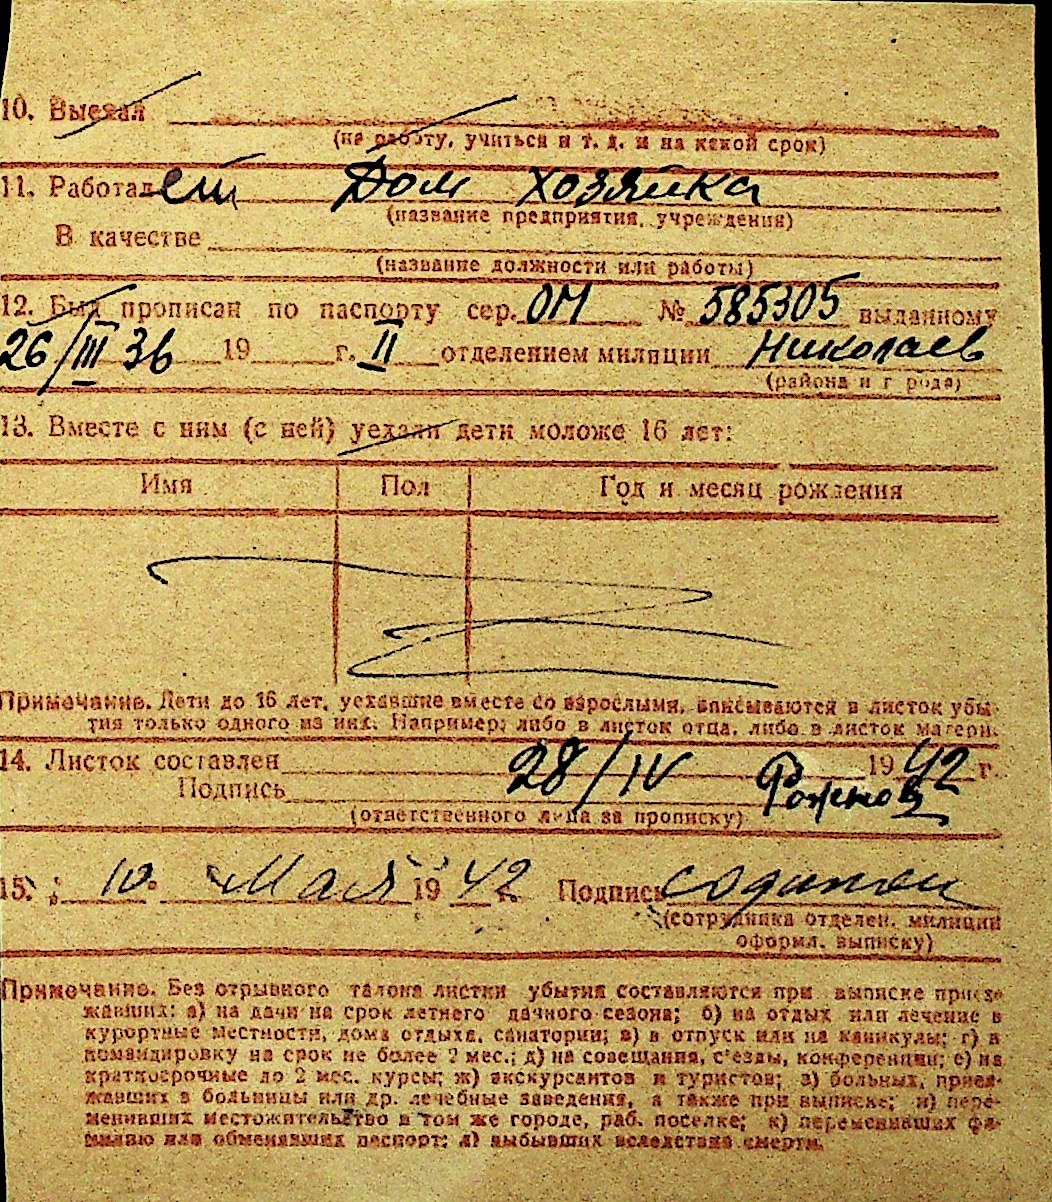 10. Выехал
(на работу, учиться и т. д. и на какой срок)
11. Работает Дом хозяйка
(название предприятия, учреждения)
В качестве
(название должности или работы)
12. Был прописан по паспорту сер. ОМ № 585305 выданному
26/III 36 19 г. II отделением милиции Николаев
(района и г рода)
13. Вместе с ним (с ней) уехали дети моложе 16 лет:
Имя Пол Год и месяц рождения
Примечание. Дети до 16 лет, уехавшие вместе со взрослыми, вписываются в листок убы-
тия только одного из них. Например: либо в листок отца, либо в листок матери.
14. Листок составлен 28/IV 1942 г.
Подпись
(ответственного лица за прописку)
15. 10 Мая 1942 г. Подпись
(сотрудника отделен. милиции
оформл. выписку)
Примечание. Без отрывного талона листки убытия составляются при выписке приезжавших: а) на дачи на срок летнего дачного сезона; б) на отдых или лечение в
курортные местности, дома отдыха, санатории; в) в отпуск или на каникулы; г) в
командировку на срок не более 2 мес.; д) на совещания, с'езды, конференции; е) на
краткосрочные до 2 мес. курсы; ж) экскурсантов и туристов; з) больных, приез-
жавших в больницы или др. лечебные заведения, а также при выписке; и) пере-
менивших местожительство в том же городе, раб. поселке; к) переменивших фа-
милию или обменявших паспорт; л) выбывших вследствие смерти.